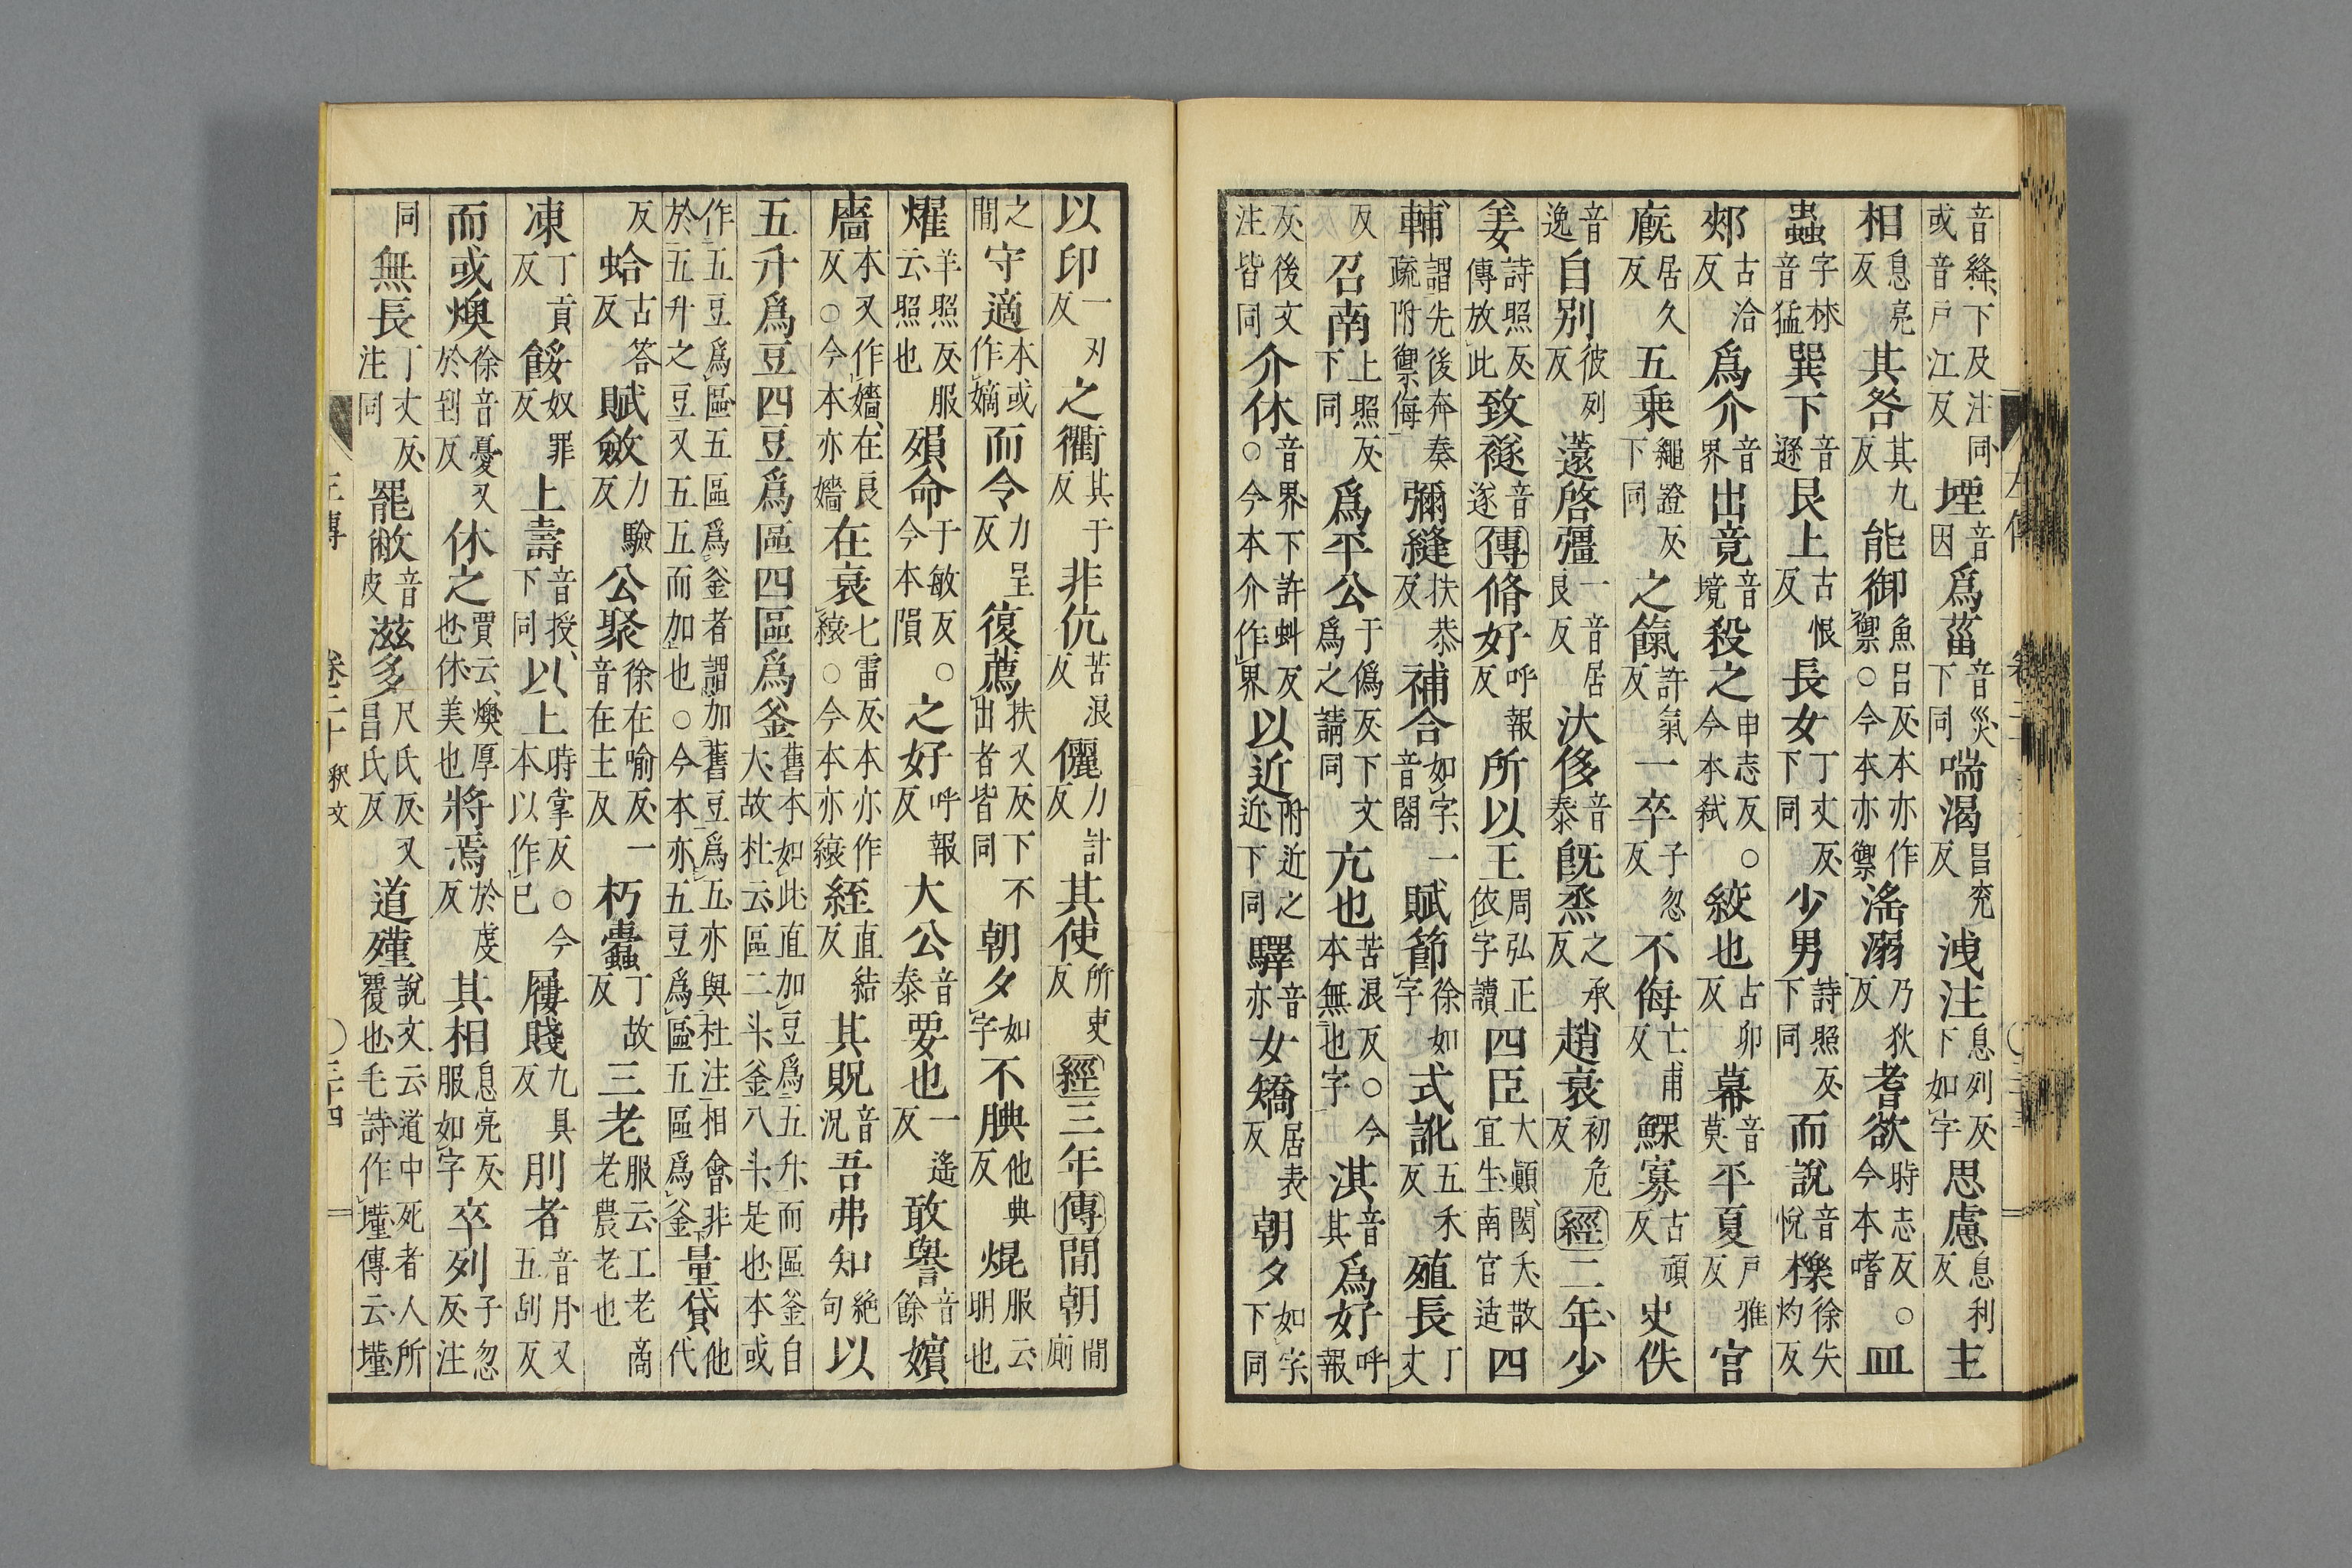 音絳下及注同或音戶江反堙音因爲菑音災下同喘渴昌兖反洩注息列反下如字思慮息利反主
相息亮反其咎其九反能御魚呂反本亦作禦○今本亦禦淫溺乃狄反耆欲時志反○今本嗜皿
蟲字林音猛巽下音遜艮上古恨反長女丁丈反下同少男詩照反下同而說音悅櫟徐失灼反
郟古洽反爲介音界出竟音境殺之申志反○今本弒絞也古卯反幕音莫平夏戶雅反官
廐居久反五乗繩證反下同之餼許氣反一卒子忽反不侮亡甫反鰥寡古頑反史佚
音逸自別彼列反薳啓彊一音居良反汏侈音泰旣烝之承反趙衰初危反經二年少
姜詩照反傳放此致襚音遂傳脩好呼報反所以王周弘正依字讀四臣大顚閎夭散宜生南宫适四
輔謂先後奔奏疏附禦侮彌縫扶恭反補合如字一音閤賦節徐如字式訛五禾反殖長丁丈
反召南上照反下同爲平公于僞反下文爲之請同亢也苦浪反○今本無也字淇音其爲好呼報
反後文注皆同介休音界下許蚪反○今本介作界以近附近之近下同驛音亦女矯居表反朝夕如字下同
以印一刃反之衢其于反非伉苦浪反儷力計反其使所吏反經三年傳閒朝閒廁
之閒守適本或作嫡而令力呈反復薦扶又反下不出者皆同朝夕如字不腆他典反焜服云明也
燿羊照反服云照也殞命于敏反○今本隕之好呼報反大公音泰要也一遙反敢譽音餘嬪
廧本又作嬙在良反○今本亦嬙在衰七雷反本亦作縗○今本亦縗絰直結反其貺音況吾弗知絶句以
五升爲豆四豆爲區四區爲釜舊本如此直加豆爲五升而區釜自大故杜云區二斗釜八斗是也本或
作五豆爲區五區爲釜者謂加舊豆爲五亦與杜注相會非於五升之豆又五五而加也○今本亦五豆爲區五區爲釜量貸他代
反蛤古答反賦斂力驗反公聚徐在喻反一音在主反朽蠹丁故反三老服云工老商老農老也
凍丁貢反餒奴罪反上壽音授下同以上時掌反○今本以作已屨賤九具反刖者音月又五刮反
而或燠徐音憂又於到反休之賈云燠厚也休美也將焉於虔反其相息亮反服如字卒列子忽反注
同無長丁丈反注同罷敝音皮滋多尺氏反又昌氏反道殣說文云道中死者人所覆也毛詩作墐傳云墐